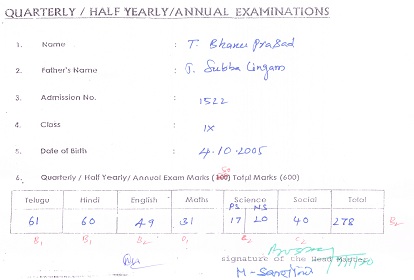 QUARTERLY / HALF YEARLY/ANNUAL EXAMINATIONS
1. Name : T. Bhanu Prasad
2. Father's Name : T. Subba Lingam
3. Admission No. : 1522
4. Class : IX
5. Date of Birth : 4.10.2005
6. Quarterly / Half Yearly/ Annual Exam Marks (100) 50 Total Marks (600)
Telugu Hindi English Maths Science Social Total
PS NS
61 60 49 31 17 20 40 278 B2
B1 B1 B2 B2 C2
signature of the Head Master
M. Sarojini